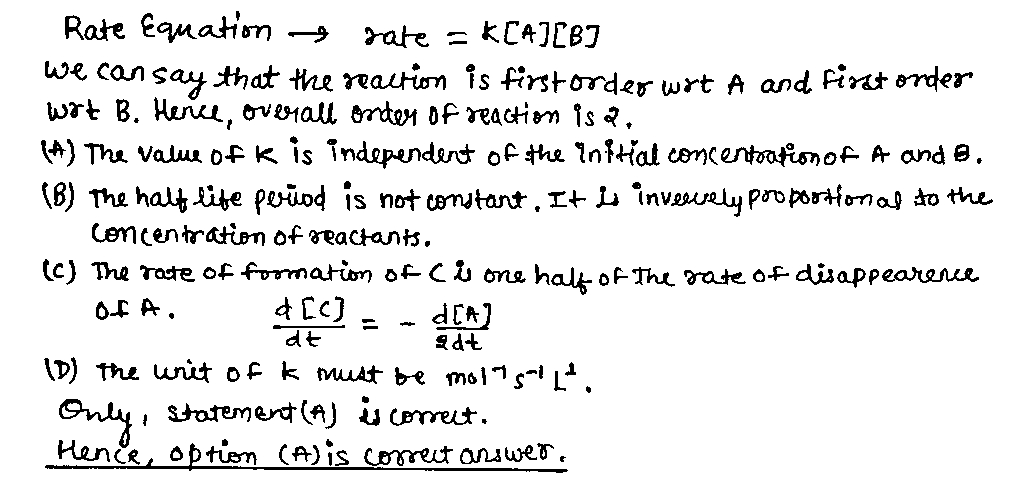 Rate Equation → rate = K[A][B]
We can say that the reaction is first order wrt A and first order
wrt B. Hence, overall order of reaction is 2.
(A) The value of K is independent of the Initial concentration of A and B.
(B) The half life period is not constant. It is inversely proportional to the
concentration of reactants.
(C) The rate of formation of C is one half of The rate of disappearence
of A. d[C]/dt = - d[A]/2dt
(D) The unit of k must be mol⁻¹ s⁻¹ L¹.
Only, statement (A) is correct.
Hence, option (A) is correct answer.